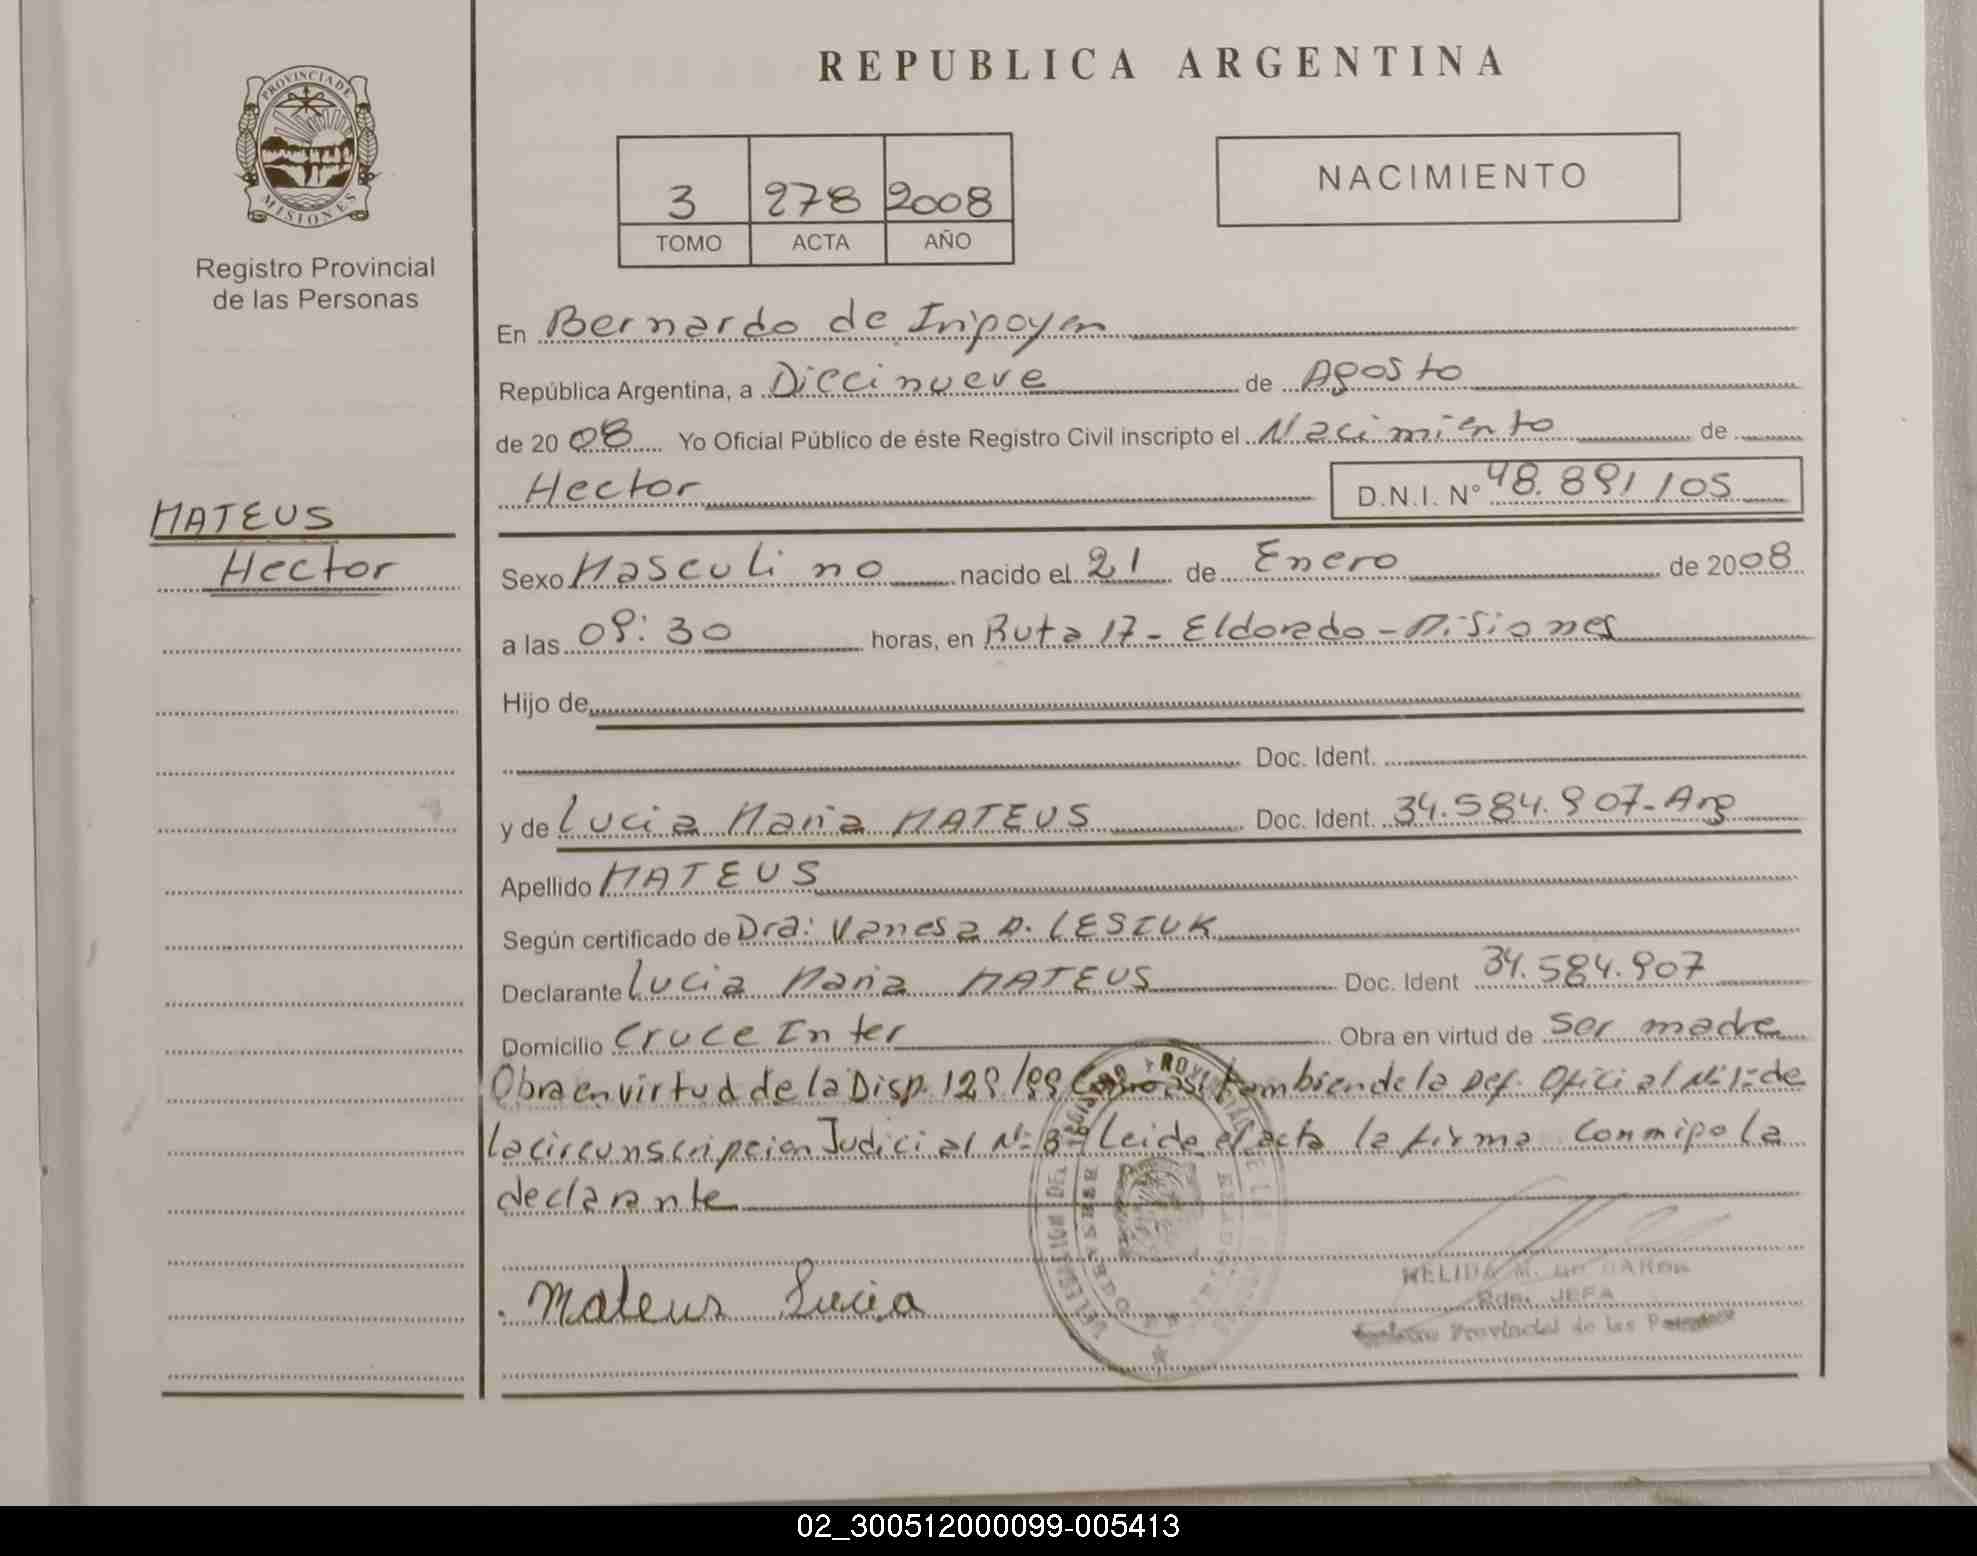 REPUBLICA ARGENTINA
PROVINCIA DE
MISIONES
Registro Provincial
de las Personas
3 278 2008
TOMO ACTA AÑO
NACIMIENTO
En Bernardo de Iripoyen
República Argentina, a Diecinueve de Agosto
de 2008 Yo Oficial Público de éste Registro Civil inscripto el Nacimiento de
Hector D.N.I. N° 48.891105
MATEUS
Hector
Sexo Masculino nacido el 21 de Enero de 2008
a las 09:30 horas, en Ruta 17 - Eldorado - Misiones
Hijo de
Doc. Ident.
y de Lucia Maria MATEUS Doc. Ident. 34.584.907-Arg
Apellido MATEUS
Según certificado de Dra: Vanesa A. LESIUK
Declarante Lucia Maria MATEUS Doc. Ident 34.584.907
Domicilio Cruce Inter Obra en virtud de Ser madre
Obra en virtud de la Disp. 129/99 Como asi tambien de la Def. Oficial Nº 1: de
la circunscripcion Judicial Nº 3- Leida el acta la firma conmigo la
declarante
Mateus Lucia
Rda. JEFA
Registro Provincial de las Personas
02_300512000099-005413